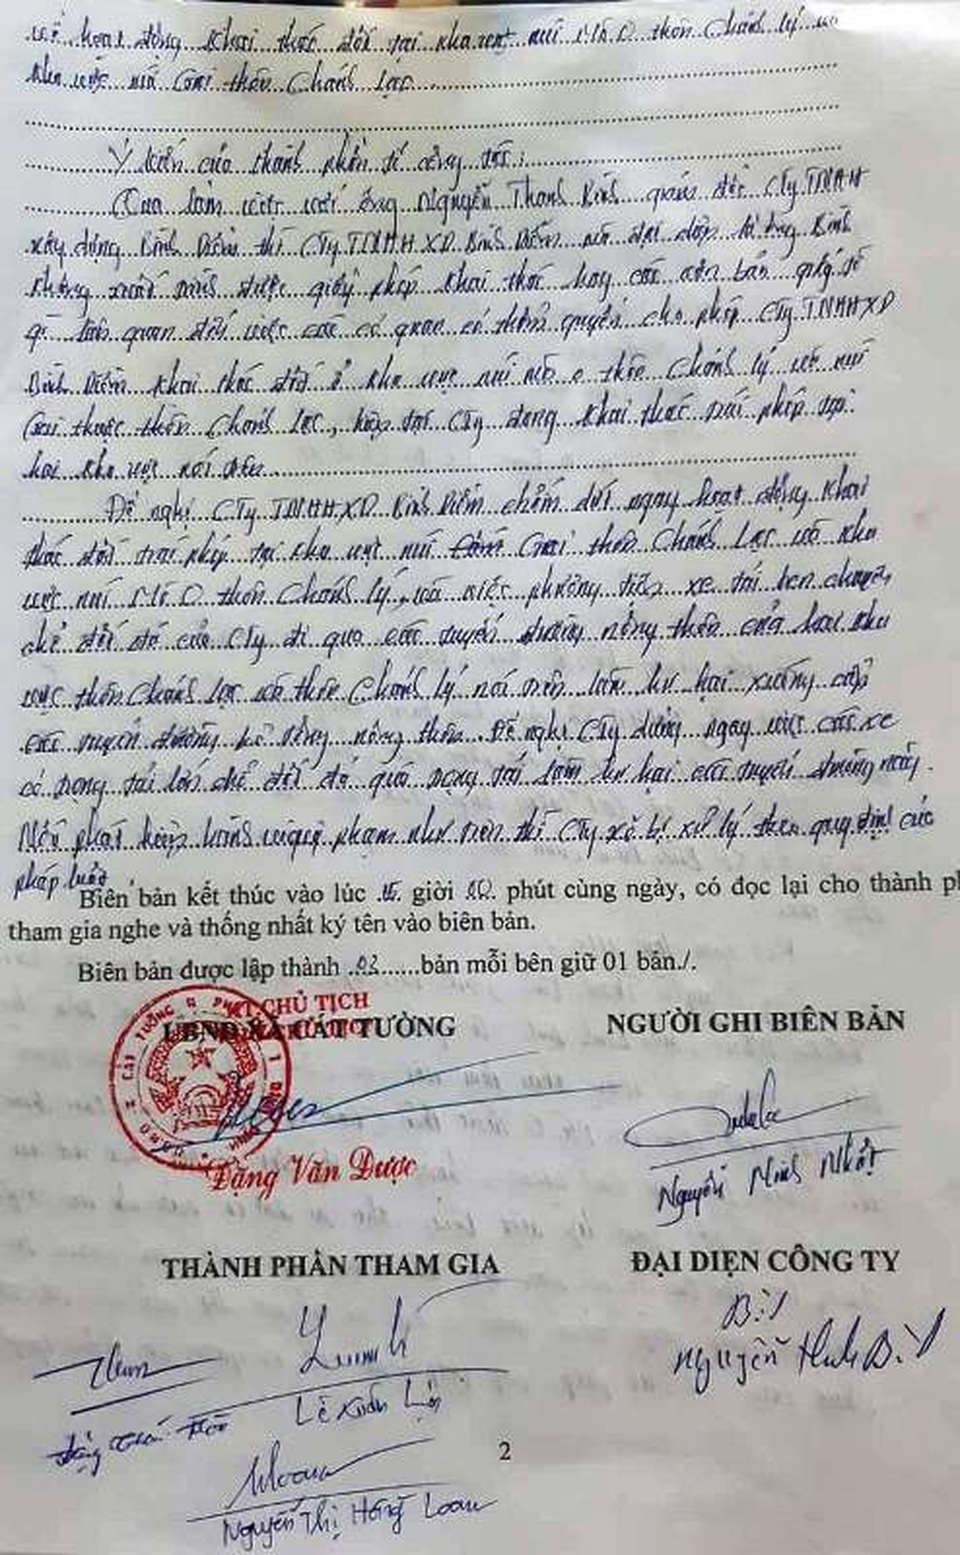 về hoạt động khai thác đất tại khu vực núi Mò O thôn Chánh lý và
khu vực núi Gai thôn Chánh Lạc
Ý kiến của thành phần tổ công tác:
Qua làm việc với ông Nguyễn Thanh Bình giám đốc CTy TNHH
xây dựng Bình Diễm thì CTy TNHH XD Bình Diễm mà đại diện là ông Bình
không xuất trình được giấy phép khai thác hay các văn bản giấy tờ
gì liên quan đến việc các cơ quan có thẩm quyền cho phép CTy TNHHXD
Bình Diễm khai thác đất ở khu vực núi Mò O thôn Chánh lý và núi
Gai thuộc thôn Chánh Lạc, hiện tại CTy đang khai thác trái phép tại
hai khu vực nói trên
Đề nghị CTy TNHHXD Bình Diễm chấm dứt ngay hoạt động khai
thác đất trái phép tại khu vực núi Gai thôn Chánh Lạc và khu
vực núi Mò O thôn Chánh lý, và việc phương tiện xe tải ben chuyên
chở đất đá của CTy đi qua các tuyến đường nông thôn của hai khu
vực thôn Chánh lạc và thôn Chánh lý nói trên làm hư hại xuống cấp
các tuyến đường bê tông nông thôn. Đề nghị CTy dừng ngay việc các xe
có trọng tải lớn chở đất đá quá trọng tải làm hư hại các tuyến đường này.
Nếu phát hiện hành vi vi phạm như trên thì CTy sẽ bị xử lý theo quy định của
pháp luật.
Biên bản kết thúc vào lúc giời phút cùng ngày, có đọc lại cho thành ph
tham gia nghe và thống nhất ký tên vào biên bản.
Biên bản được lập thành .02......bản mỗi bên giữ 01 bản./.
KT. CHỦ TỊCH
UBND XÃ CÁT TƯỜNG
NGƯỜI GHI BIÊN BẢN
Đặng Văn Dược
Nguyễn Minh Nhất
THÀNH PHẦN THAM GIA
ĐẠI DIỆN CÔNG TY
Nguyễn Thanh Bình
Lê Xuân
2
Nguyễn Thị Hồng Loan